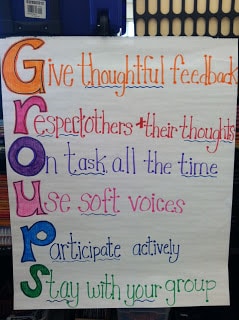 Give thoughtful feedback
respect others + their thoughts
On task all the time
Use soft voices
Participate actively
Stay with your group